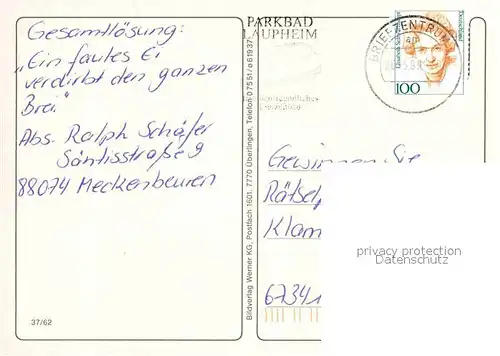 Gesamtlösung:
„Ein faules Ei
verdirbt den ganzen
Brei."
Abs. Ralph Schäfer
Säntisstraße 9
88074 Meckenbeuren
37/62
Bildverlag Werner KG, Postfach 1601, 7770 Überlingen, Telefon 07551/61937
PARKBAD
LAUPHEIM
BRIEFZENTRUM
Deutschland
100
Gewinnen Sie
Rätsel
Klam
6734
privacy protection
Datenschutz